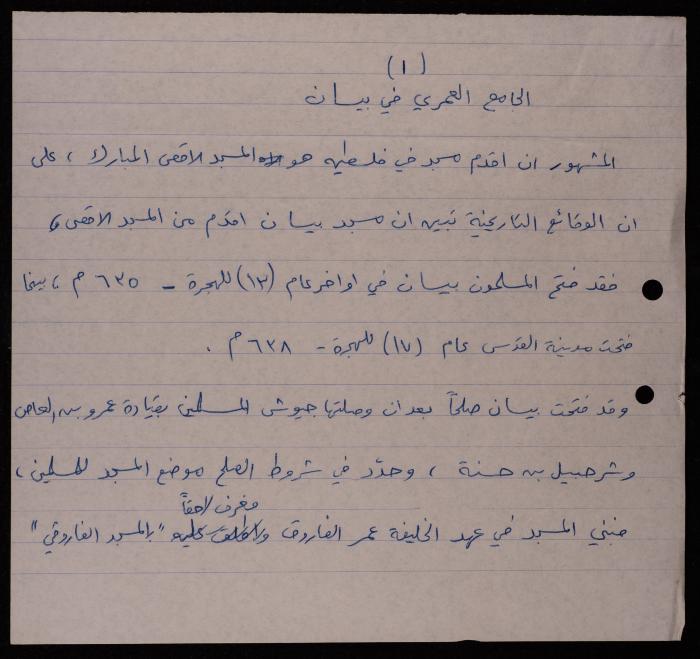 (١)
الجامع العمري في بيسان
المشهور ان اقدم مسجد في فلسطين هو المسجد الاقصى المبارك ، على
ان الوقائع التاريخية تبين ان مسجد بيسان اقدم من المسجد الاقصى ،
فقد فتح المسلمون بيسان في اواخر عام (١٣) للهجرة - ٦٣٥ م ، بينما
فتحت مدينة القدس عام (١٧) للهجرة - ٦٣٨ م .
وقد فتحت بيسان صلحاً بعد ان وصلتها جيوش المسلمين بقيادة عمرو بن العاص
وشرحبيل بن حسنة ، وحدّد في شروط الصلح موضع المسجد للمسلمين ،
وعرف لاحقاً
فبني المسجد في عهد الخليفة عمر الفاروق واطلق عليه "بالمسجد الفاروقي"